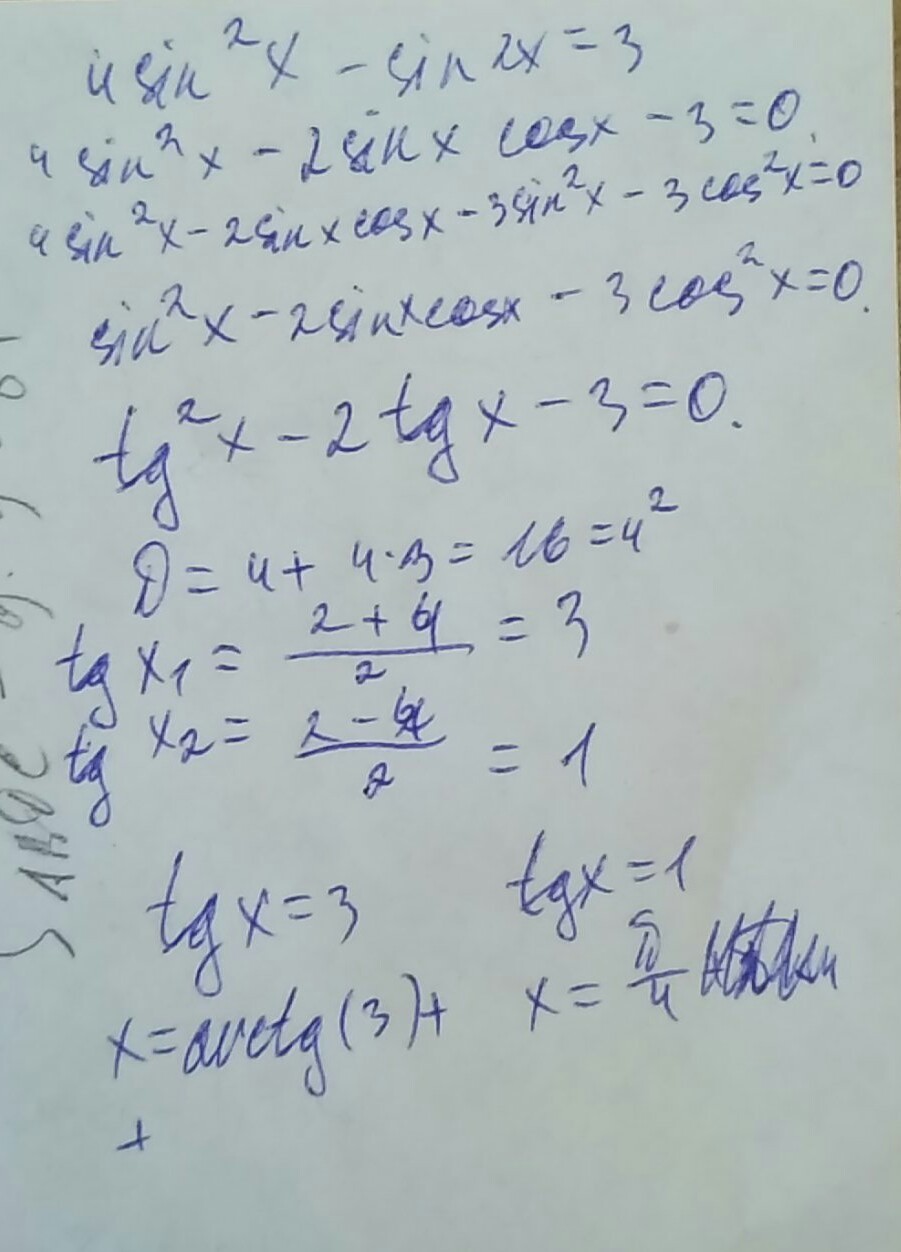 4 sin²x - sin 2x = 3
4 sin²x - 2 sin x cos x - 3 = 0.
4 sin²x - 2 sin x cos x - 3 sin²x - 3 cos²x = 0
sin²x - 2 sin x cos x - 3 cos²x = 0.
tg²x - 2 tg x - 3 = 0.
D = 4 + 4·3 = 16 = 4²
tg x₁ = (2 + 4)/2 = 3
tg x₂ = (2 - 4)/2 = 1
tg x = 3 tg x = 1
x = arctg(3) + x = π/4
+